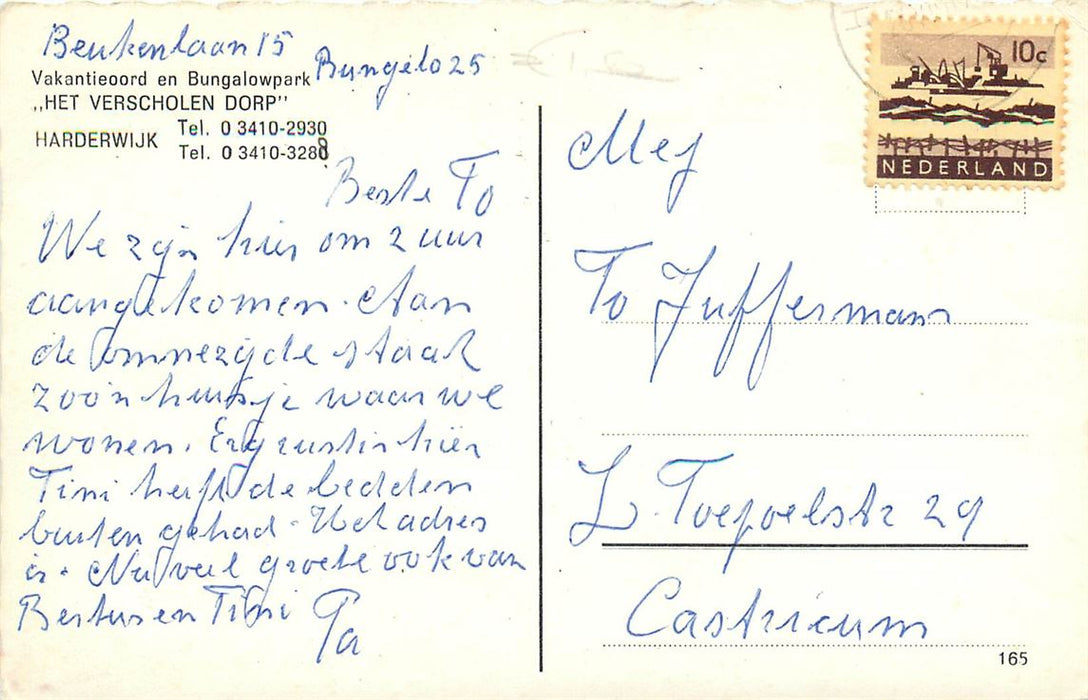 Beukenlaan 15
Bungelo 25
Vakantieoord en Bungalowpark
„HET VERSCHOLEN DORP"
HARDERWIJK Tel. 0 3410-2930
Tel. 0 3410-3288
Beste To
We zijn hier om 2 uur
aangekomen. Aan
de ommezijde staat
zoo'n huisje waar we
wonen. Erg rustig hier
Tini heeft de bedden
buiten gehad. Het adres
is. Nu veel groete ook van
Bertus en Tini Pa
10c
NEDERLAND
Mej
To Juffermans
L. Toepoelstr 29
Castricum
165